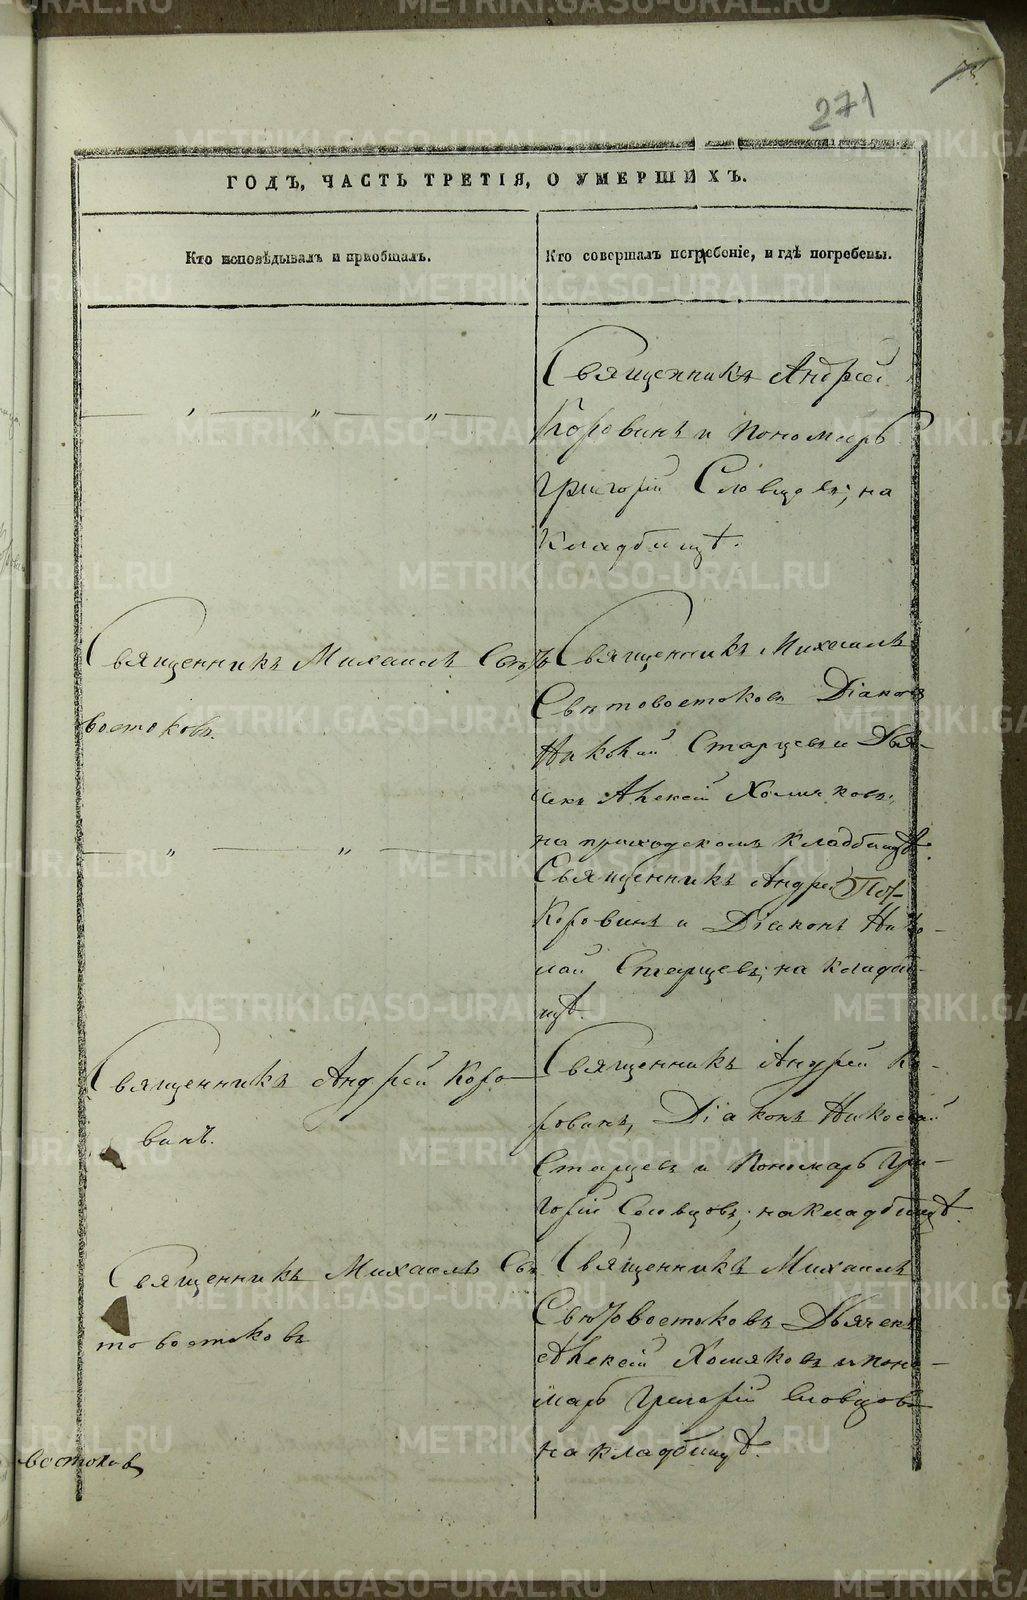 271
ГОДЪ, ЧАСТЬ ТРЕТІЯ, О УМЕРШИХЪ.
Кто исповѣдывалъ и пріобщалъ.
Кто совершалъ погребеніе, и гдѣ погребены.
Священникъ Андрей
Коровинъ и Пономарь
Григорій Словцовъ; на
Кладбищѣ.
Священникъ Михаилъ Свѣто
востоковъ.
Священникъ Михаилъ
Свѣтовостоковъ Діаконъ
Николай Старцевъ и Дья-
чекъ Алексей Хомяковъ;
на приходскомъ кладбищѣ.
Священникъ Андрей
Коровинъ и Діаконъ Нико-
лай Старцевъ; на кладби-
щѣ.
Священникъ Андрей Коро-
винъ.
Священникъ Андрей Ко-
ровинъ, Діаконъ Николай
Старцевъ и Пономарь Гри-
горій Словцовъ; на кладбищѣ.
Священникъ Михаилъ Свѣ
товостоковъ
Священникъ Михаилъ
Свѣтовостоковъ Дьячекъ
Алексей Хомяковъ и поно-
марь Григорій Словцовъ
на кладбищѣ.
востоковъ
METRIKI.GASO-URAL.RU